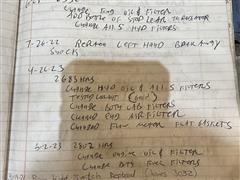 CHANGE ENG OIL & FILTER
ADD BOTTLE OF STOP LEAK TO RADIATOR
CHANGE ALL 5 HYD FILTERS
7-26-22 REPLACE LEFT HAND BREAK AWAY
SHOCKS
4-26-23
2685 HRS
CHANGE HYD OIL & ALL 5 FILTERS
TESTED COOLANT
CHANGE BOTH CAB FILTERS
CHANGED ENG AIR FILTER
CHANGED FLOW METER FLAT GASKETS
5-2-23 2802 HRS
CHANGE ENGINE OIL & FILTER
CHANGE BOTH FUEL FILTERS
Switch Replaced 3032